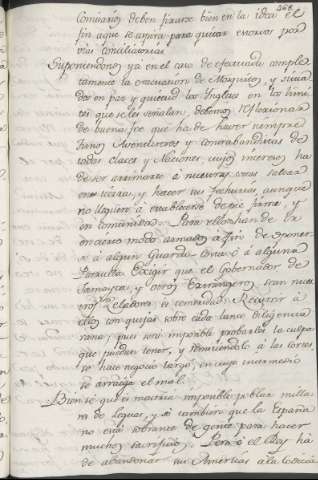 268.
Comisarios deben fixarse bien en la idea el
fin aque se aspira para quitar errores por
vias conciliatorias.
Suponiendonos ya en el caso de efectuada comple
tamente la evacuacion de Mosquitos, y situa
dos en paz y quietud los Ingleses en los limi
tes que se les señalan, debemos reflexionar
de buena fee que ha de haver siempre
unos Aventureros y Contrabandistas de
todas clases y Naciones, cuyo interes ha
de ser arrimarse a nuestras costas saltar
en tierra, y hacer sus fechurias, aunque
no lleguen a establecerse de pie firme, y
en comunidad. Para ello han de ir
en cierto modo armados a fin de oponer
se a algun Guarda costa ó á alguna
Patrulla. Exigir que el Gobernador de
Jamayca, y otros Extrangeros sean nues
tros Zeladores es cortedad. Recurrir á
ellos con quejas sobre cada lance diligencia
vana, pues será imposible probarles la culpa
que puedan tener, y remitiendolo á las Cortes
se hace negocio largo, en cuyo intermedio
se arraiga el mal.
Bien sé que es materia imposible poblar milla
res de leguas, y sé tambien que la España
no está sobrante de gente para hacer
muchos sacrificios. Pero ó el Rey há
de abandonar sus Américas a la codicia